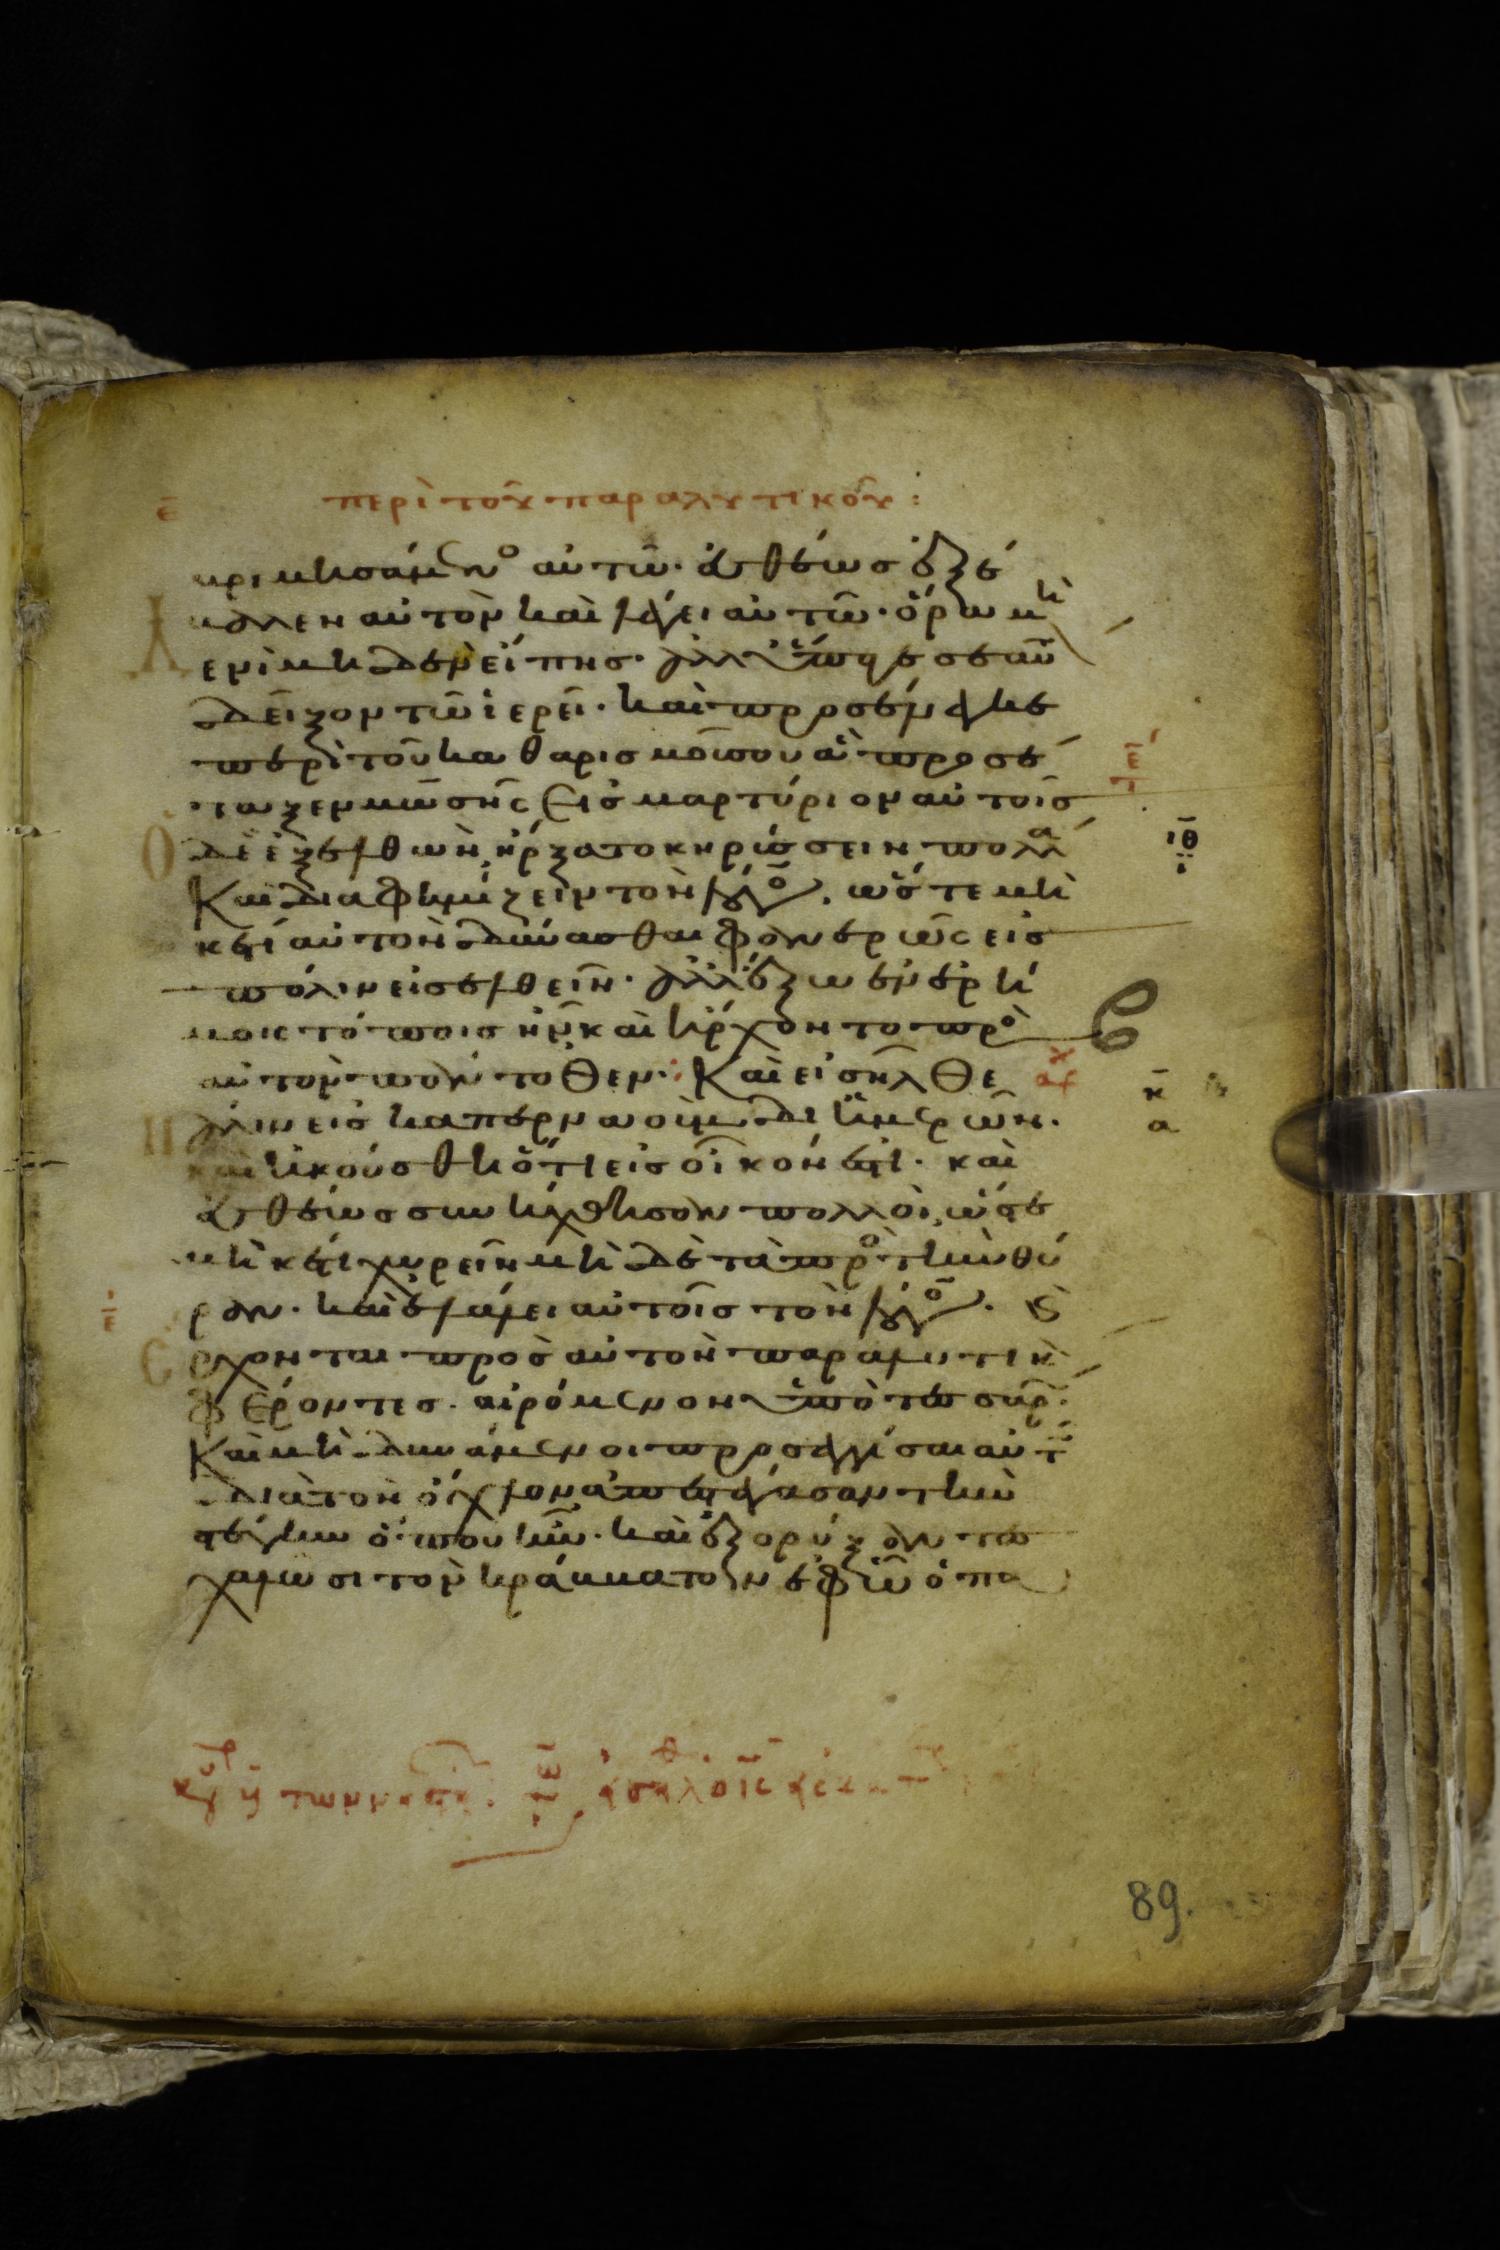 ε̄ περὶ τοῦ παραλυτικοῦ:
βριμησάμενο αὐτῶ. εὐθέως ἐξέ
βαλεν αὐτὸν καὶ λέγει αὐτῶ. ὅρα μη
δενὶ μηδὲν εἴπης. ἀλλ' ὕπαγε σεαυ
δεῖξον τῶ ἱερεῖ. καὶ προσένεγκε
περὶ τοῦ καθαρισμοῦ σου ἃ προσέ
ταξεν μωσῆς εἰς μαρτύριον αὐτοῖς
Ὁ δὲ ἐξελθὼν, ἤρξατο κηρύσσειν πολλα
Καὶ διαφημίζειν τὸν λόγο. ὥστε μὴ
κέτι αὐτὸν δύνασθαι φανερῶς εἰς
πόλιν εἰσελθεῖν. ἀλλ' ἔξω ἐν ἐρή
μοις τόποις ἦν καὶ ἤρχοντο πρὸ
αὐτὸν πάντοθεν: Καὶ εἰσῆλθε
Πάλιν εἰς καπερναοὺμ δι' ἡμερῶν.
καὶ ἠκούσθη ὅτι εἰς οἶκόν ἐστι. καὶ
εὐθέως συνήχθησαν πολλοὶ, ὥστε
μηκέτι χωρεῖν μηδὲ τὰ πρὸ τὴν θύ
ραν. καὶ ἐλάλει αὐτοῖς τὸν λόγο.
Ἔρχονται πρὸς αὐτὸν παραλυτικὸ
φέροντες. αἰρόμενον ὑπὸ τεσσάρ.
Καὶ μὴ δυνάμενοι προσεγγίσαι αὐτ
διὰ τὸν ὄχλον ἀπεστέγασαν τὴν
στέγην ὅπου ἦν. καὶ ἐξορύξαντε
χαλῶσι τὸν κράββατον ἐφ' ᾧ ὁ πα
ιθ
ι
κ̄
α
αρχ
89.